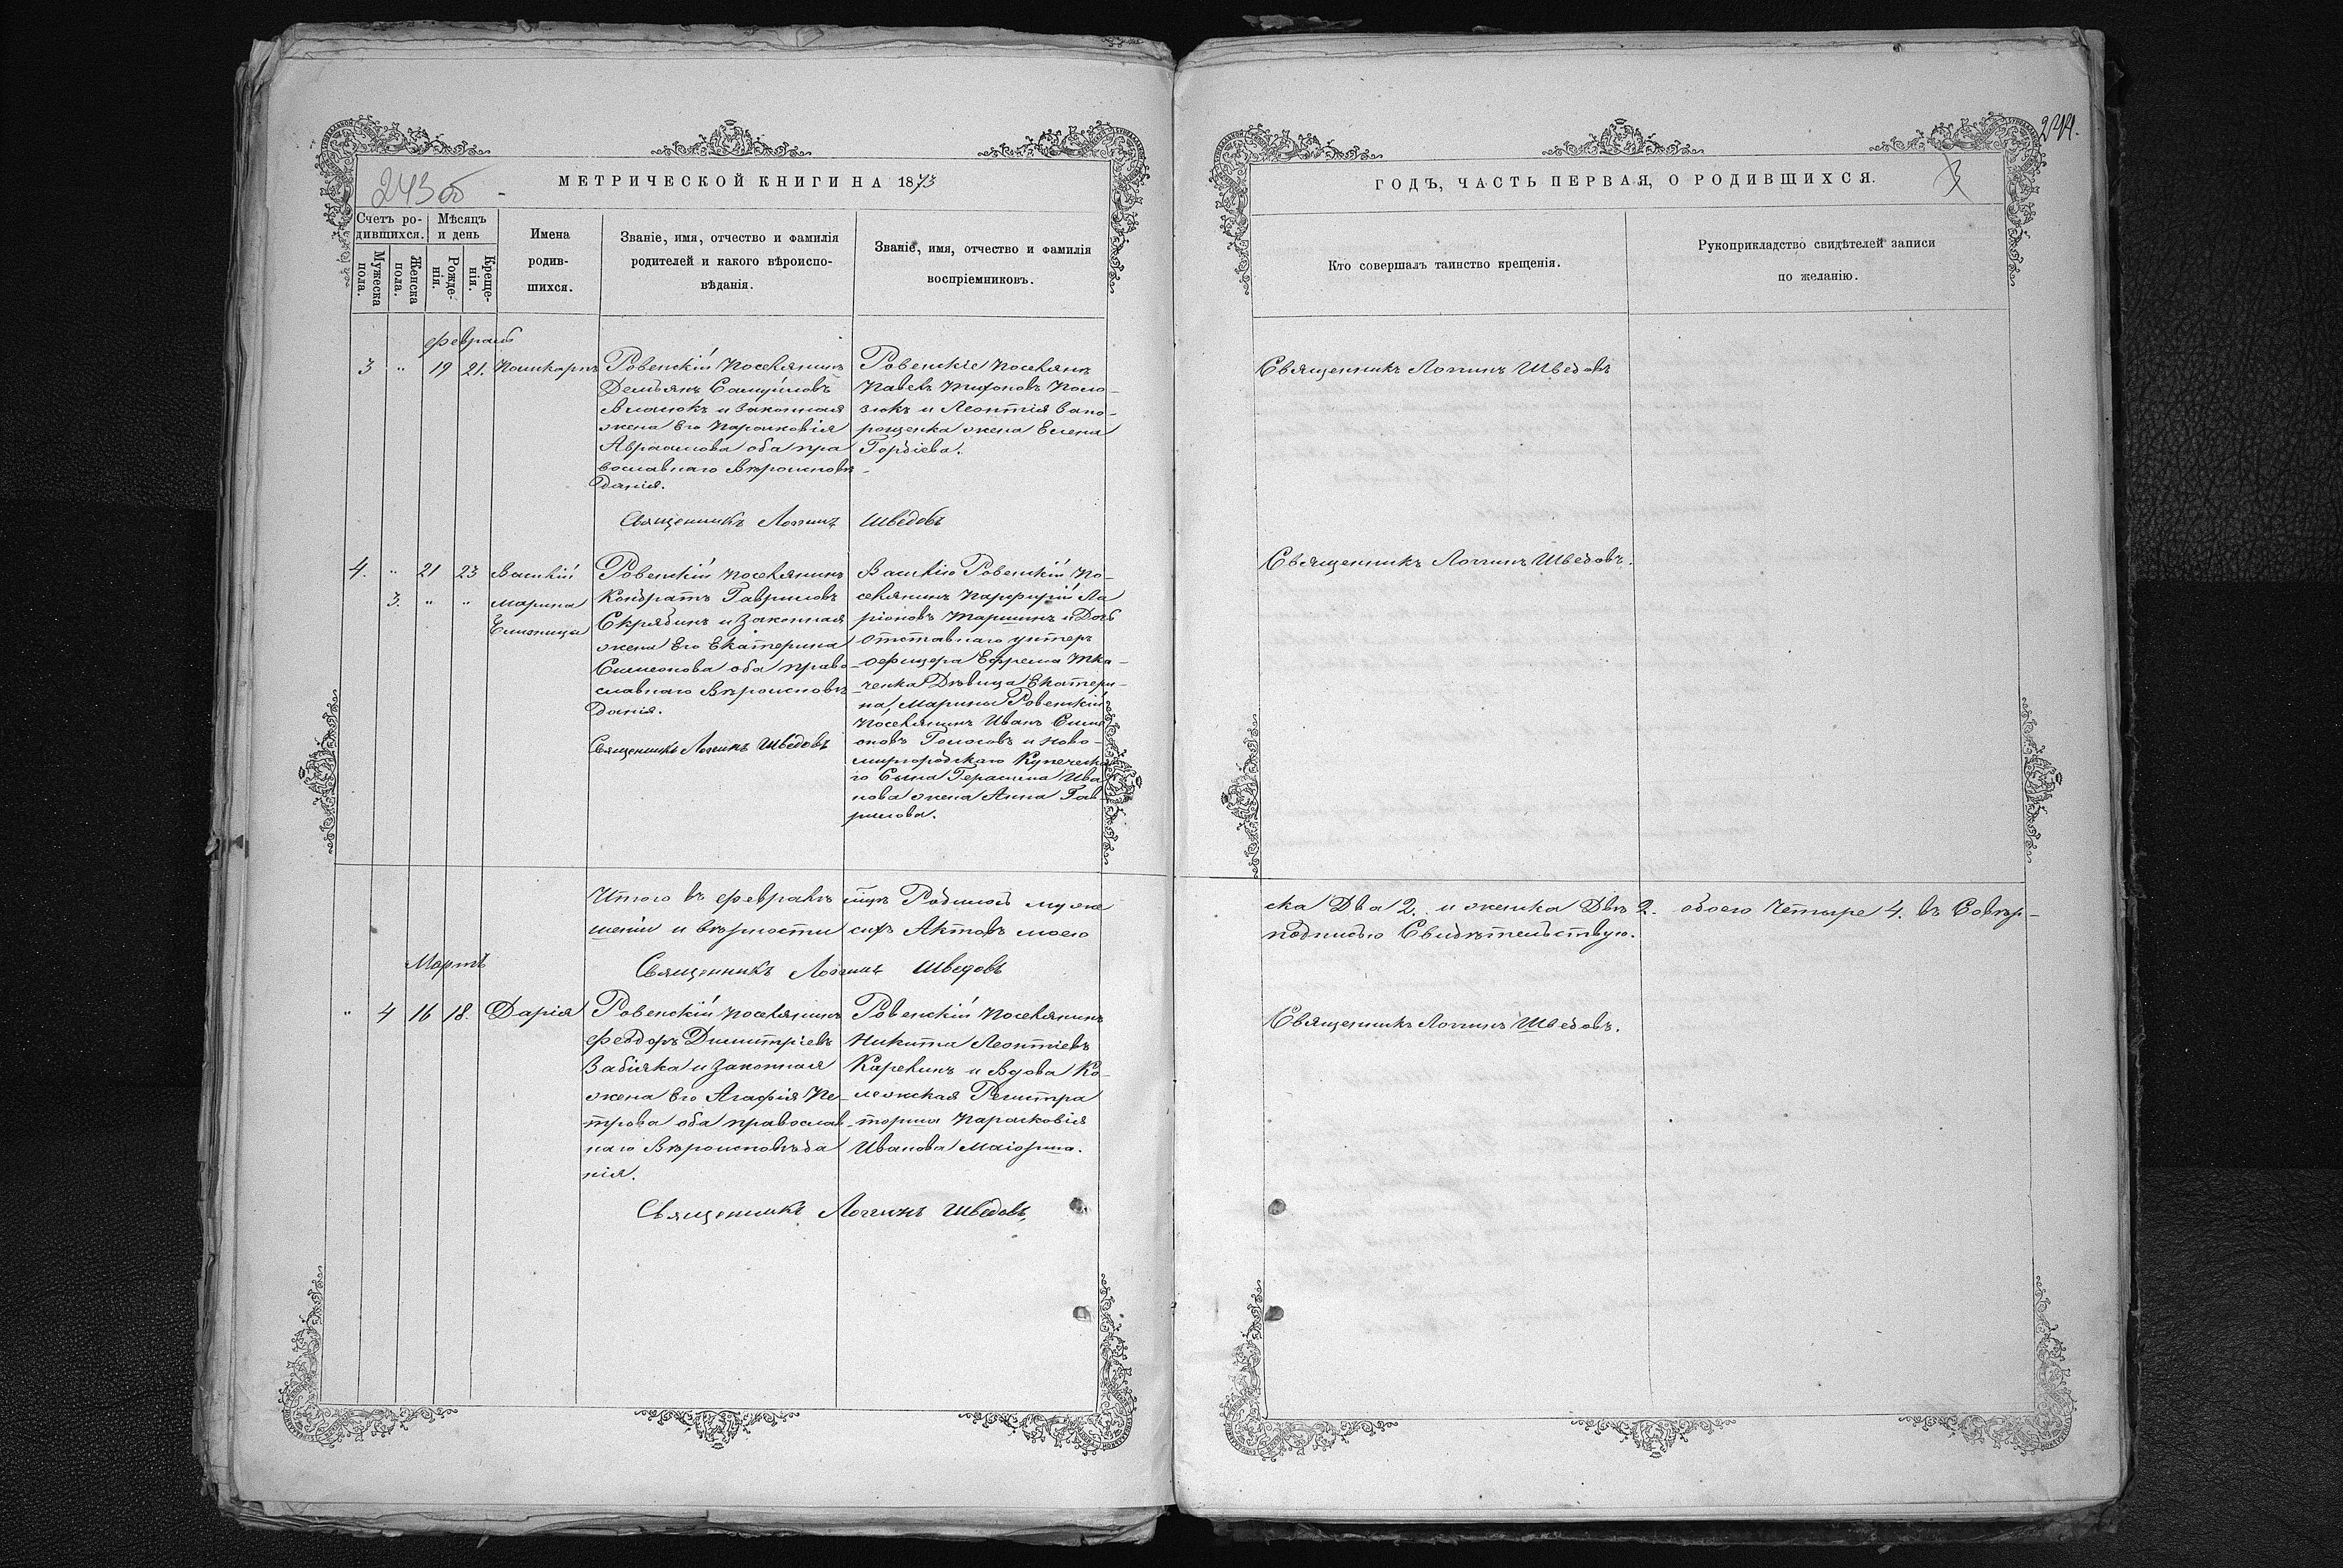 243 об
МЕТРИЧЕСКОЙ КНИГИ НА 1873
Счетъ ро-
дившихся.
Мѣсяцъ
и день
Мужеска
пола.
Женска
пола.
Рожде-
нія.
Креще-
нія.
Имена
родив-
шихся.
Званіе, имя, отчество и фамилія
родителей и какого вѣроиспо-
вѣданія.
Званіе, имя, отчество и фамилія
воспріемниковъ.
февраль
3 " 19 21.
Ровенскій поселянинъ
Демьянъ Самуиловъ
и законная
жена Его Парасковія
Авраамова оба пра
вославнаго вѣроисповѣ-
данія.
Ровенскіе поселяне
Павелъ
и Леонтія Запо-
рощенка жена Елена
Гордіева.
Священникъ Логинъ Шведовъ
4. " 21 23 Василій
3. " " Марина
Близницы
Ровенскій поселянинъ
Кондратъ Гавриловъ
Скрябинъ и законная
жена Его Екатерина
Симеонова оба право
славнаго вѣроисповѣ
данія.
Священникъ Логинъ Шведовъ
Василію Ровенскій по-
селянинъ Парфирій Ла
ріоновъ и Дочь
отставнаго унтеръ
офицера Ефрема Тка-
ченка Дѣвица Екатери-
на, Марины Ровенскій
поселянинъ Иванъ Симе
оновъ Голосовъ и ново-
миргородскаго Купеческа
го Сына Герасима Ива
нова жена Анна Гав-
рилова.
Итого въ февралѣ мцѣ Родилось муже
шеніи и вѣрности сихъ Актовъ моею
Священникъ Логинъ Шведовъ
Мартъ
" 4 16 18. Дарія
Ровенскій поселянинъ
Феодоръ Димитріевъ
Забіяка и законная
жена Его Агафія Пе-
трова оба православ-
наго Вѣроисповѣда
нія.
Ровенскій поселянинъ
Никита Леонтіевъ
Карекинъ и Вдова Ко-
лежская Регистра
торша Парасковія
Иванова
Священникъ Логинъ Шведовъ,
244.
ГОДЪ, ЧАСТЬ ПЕРВАЯ, О РОДИВШИХСЯ.
3
Кто совершалъ таинство крещенія.
Рукоприкладство свидѣтелей записи
по желанію.
Священникъ Логинъ Шведовъ
Священникъ Логинъ Шведовъ.
ска Два 2. и женска Двѣ 2. обоего Четыре 4. въ Совер-
подписью Свидѣтельствую.
Священникъ Логинъ Шведовъ.